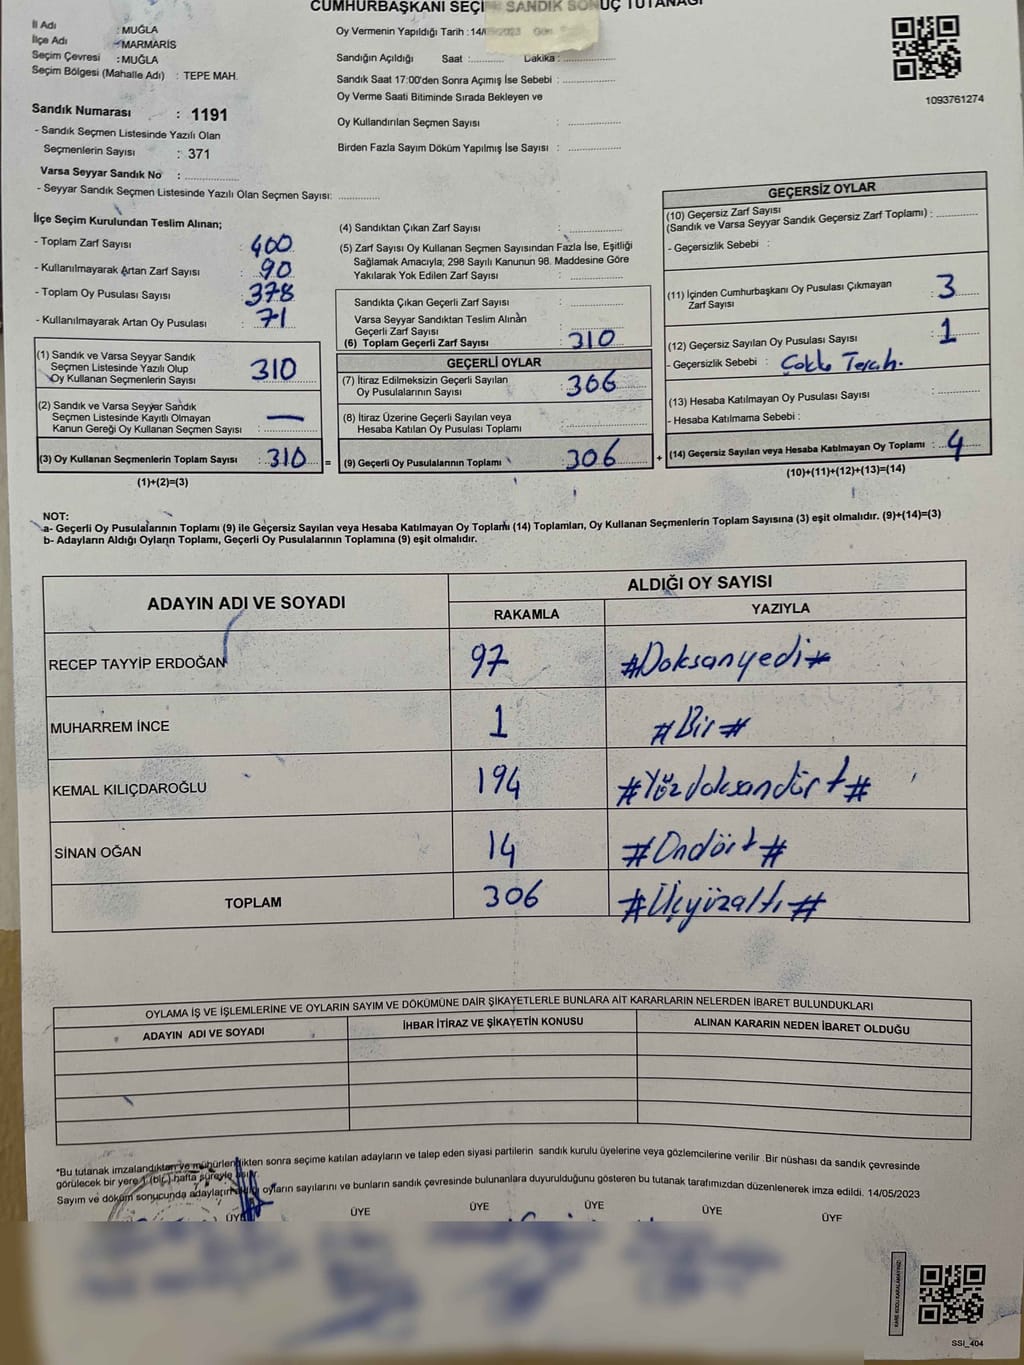 CUMHURBAŞKANI SEÇİ SANDIK SONUÇ TUTANAĞI
İl Adı : MUĞLA
İlçe Adı : MARMARİS
Seçim Çevresi : MUĞLA
Seçim Bölgesi (Mahalle Adı) : TEPE MAH.
Sandık Numarası : 1191
- Sandık Seçmen Listesinde Yazılı Olan
Seçmenlerin Sayısı : 371
Varsa Seyyar Sandık No : ..............
- Seyyar Sandık Seçmen Listesinde Yazılı Olan Seçmen Sayısı: ............
Oy Vermenin Yapıldığı Tarih : 14/05/2023
Sandığın Açıldığı Saat :......... Dakika : ..............
Sandık Saat 17:00'den Sonra Açımış İse Sebebi : ..............
Oy Verme Saati Bitiminde Sırada Bekleyen ve
Oy Kullandırılan Seçmen Sayısı : ..............
Birden Fazla Sayım Döküm Yapılmış İse Sayısı : ..............
1093761274
İlçe Seçim Kurulundan Teslim Alınan;
- Toplam Zarf Sayısı : 400
- Kullanılmayarak Artan Zarf Sayısı : 90
- Toplam Oy Pusulası Sayısı : 378
- Kullanılmayarak Artan Oy Pusulası : 71
(1) Sandık ve Varsa Seyyar Sandık
Seçmen Listesinde Yazılı Olup
Oy Kullanan Seçmenlerin Sayısı : 310
(2) Sandık ve Varsa Seyyar Sandık
Seçmen Listesinde Kayıtlı Olmayan
Kanun Gereği Oy Kullanan Seçmen Sayısı : —
(3) Oy Kullanan Seçmenlerin Toplam Sayısı : 310 =
(1)+(2)=(3)
(4) Sandıktan Çıkan Zarf Sayısı : ..............
(5) Zarf Sayısı Oy Kullanan Seçmen Sayısından Fazla İse, Eşitliği
Sağlamak Amacıyla; 298 Sayılı Kanunun 98. Maddesine Göre
Yakılarak Yok Edilen Zarf Sayısı : ..............
Sandıkta Çıkan Geçerli Zarf Sayısı : ..............
Varsa Seyyar Sandıktan Teslim Alınan
Geçerli Zarf Sayısı : ..............
(6) Toplam Geçerli Zarf Sayısı : 310
GEÇERLİ OYLAR
(7) İtiraz Edilmeksizin Geçerli Sayılan
Oy Pusulalarının Sayısı : 306
(8) İtiraz Üzerine Geçerli Sayılan veya
Hesaba Katılan Oy Pusulası Toplamı : ..............
(9) Geçerli Oy Pusulalarının Toplamı : 306 +
GEÇERSİZ OYLAR
(10) Geçersiz Zarf Sayısı
(Sandık ve Varsa Seyyar Sandık Geçersiz Zarf Toplamı) : ............
- Geçersizlik Sebebi :
(11) İçinden Cumhurbaşkanı Oy Pusulası Çıkmayan
Zarf Sayısı : 3
(12) Geçersiz Sayılan Oy Pusulası Sayısı : 1
- Geçersizlik Sebebi : Çoklu Tercih.
(13) Hesaba Katılmayan Oy Pusulası Sayısı : ............
- Hesaba Katılmama Sebebi :
(14) Geçersiz Sayılan veya Hesaba Katılmayan Oy Toplamı : 4
(10)+(11)+(12)+(13)=(14)
NOT:
a- Geçerli Oy Pusulalarının Toplamı (9) ile Geçersiz Sayılan veya Hesaba Katılmayan Oy Toplamı (14) Toplamları, Oy Kullanan Seçmenlerin Toplam Sayısına (3) eşit olmalıdır. (9)+(14)=(3)
b- Adayların Aldığı Oyların Toplamı, Geçerli Oy Pusulalarının Toplamına (9) eşit olmalıdır.
ADAYIN ADI VE SOYADI
ALDIĞI OY SAYISI
RAKAMLA YAZIYLA
RECEP TAYYİP ERDOĞAN 97 #Doksanyedi#
MUHARREM İNCE 1 #Bir#
KEMAL KILIÇDAROĞLU 194 #Yüzdoksandört#
SİNAN OĞAN 14 #Ondört#
TOPLAM 306 #Üçyüzaltı#
OYLAMA İŞ VE İŞLEMLERİNE VE OYLARIN SAYIM VE DÖKÜMÜNE DAİR ŞİKAYETLERLE BUNLARA AİT KARARLARIN NELERDEN İBARET BULUNDUKLARI
ADAYIN ADI VE SOYADI İHBAR İTİRAZ VE ŞİKAYETİN KONUSU ALINAN KARARIN NEDEN İBARET OLDUĞU
*Bu tutanak imzalandıktan ve mühürlendikten sonra seçime katılan adayların ve talep eden siyasi partilerin sandık kurulu üyelerine veya gözlemcilerine verilir .Bir nüshası da sandık çevresinde
görülecek bir yere 1 (bir) hafta süreyle asılır.
Sayım ve döküm sonucunda adayların aldığı oyların sayılarını ve bunların sandık çevresinde bulunanlara duyurulduğunu gösteren bu tutanak tarafımızdan düzenlenerek imza edildi. 14/05/2023
ÜYE ÜYE ÜYE ÜYE ÜYE ÜYE
KARE KODU KARALAMAYINIZ!
SSI_404